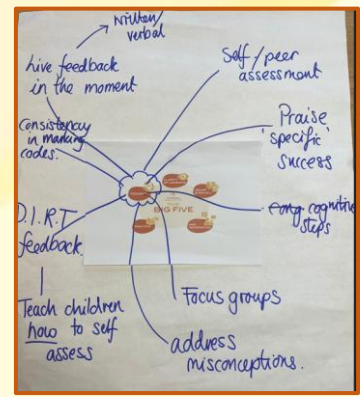 written/
verbal
live feedback
in the moment
Self/peer
assessment
consistency
in marking
codes.
Praise
'specific'
success
BIG FIVE
cognitive
steps
D.I.R.T
feedback.
Teach children
how to self
assess
Focus groups
address
misconceptions.